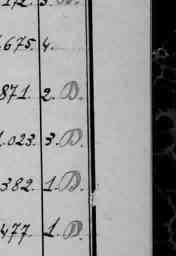 172. 3. D.
.675. 4.
871. 2. D.
1.023. 3. D.
382. 1. D.
477. 1. D.